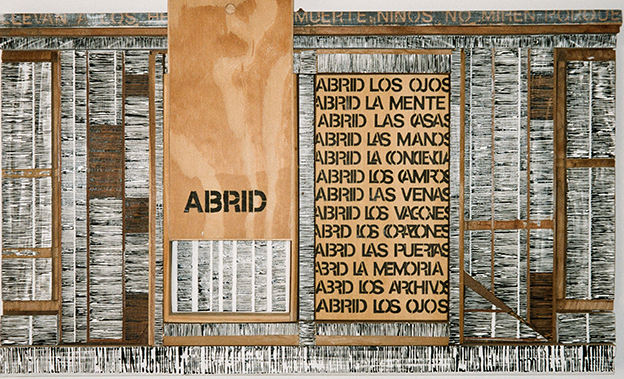 LEVAN A LOS MUERTE NIÑOS NO MIREN PORQUE
ABRID
ABRID LOS OJOS
ABRID LA MENTE
ABRID LAS CASAS
ABRID LAS MANOS
ABRID LA CONCIENCIA
ABRID LOS CAMPOS
ABRID LAS VENAS
ABRID LOS VAGONES
ABRID LOS CORAZONES
ABRID LAS PUERTAS
ABRID LA MEMORIA
ABRID LOS ARCHIVOS
ABRID LOS OJOS